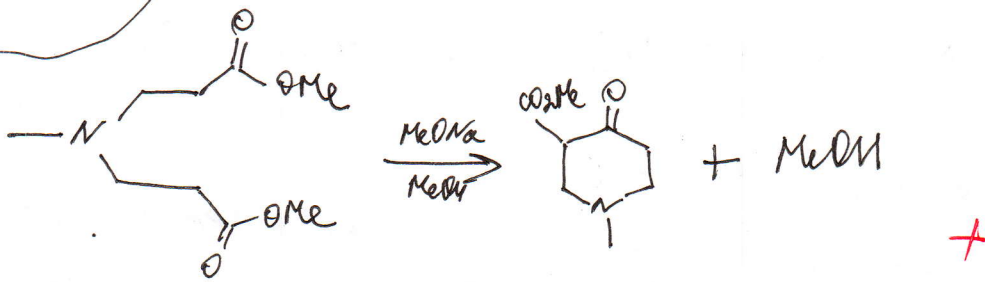 O
OMe
N
OMe
O
MeONa
MeOH
CO2Me O
N
+ MeOH
+